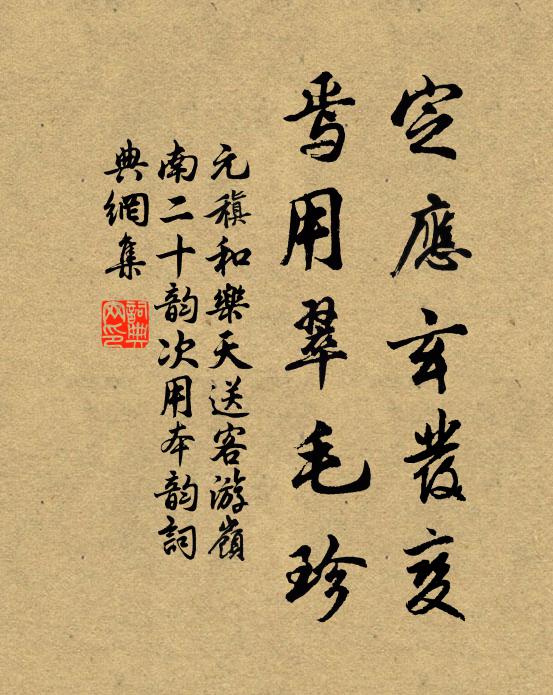 定應玄發變
焉用翠毛珍
元稹和樂天送客游嶺
南二十韵次用本韵詞
典網集
詞典
网印